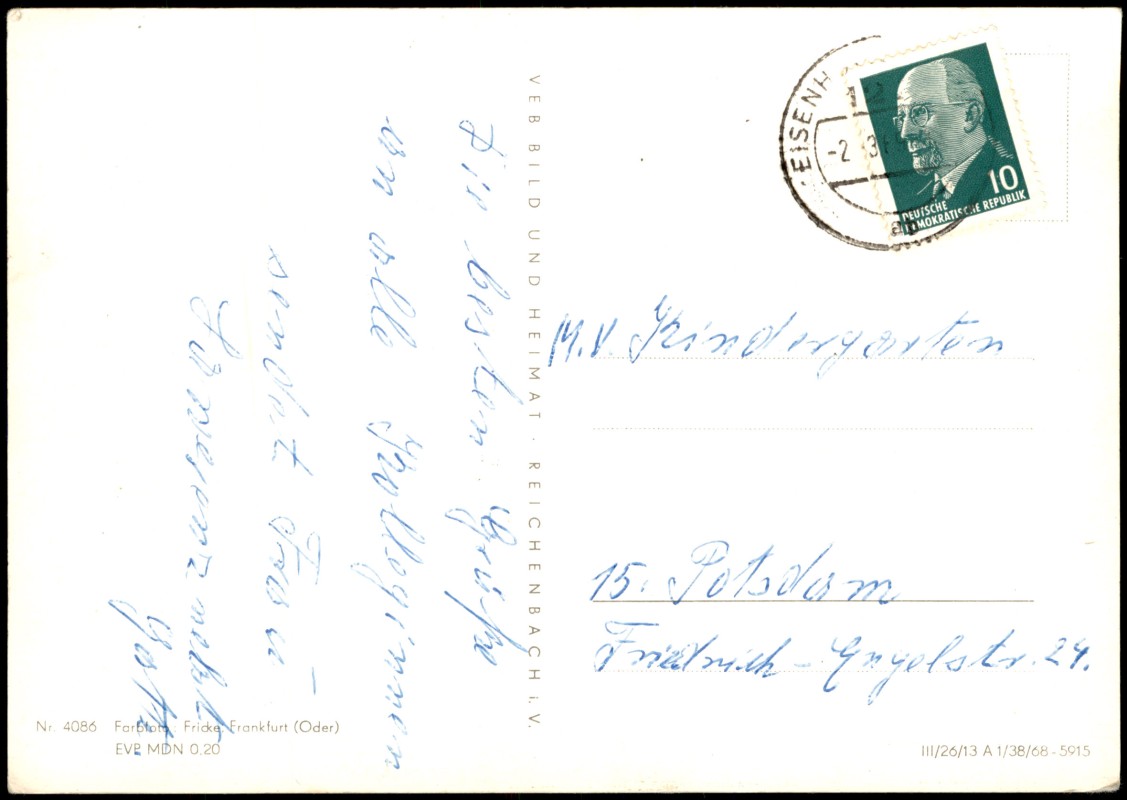 Die besten Grüße
an alle Kolleginnen
sendet Frau –
VEB BILD UND HEIMAT · REICHENBACH i. V.
EISENH
-2
10
DEUTSCHE
DEMOKRATISCHE REPUBLIK
ap
M.V. Kindergarten
15. Potsdam
Friedrich-Engelstr. 24.
Nr. 4086 Farbfoto: Fricke, Frankfurt (Oder)
EVP MDN 0,20
III/26/13 A 1/38/68-5915